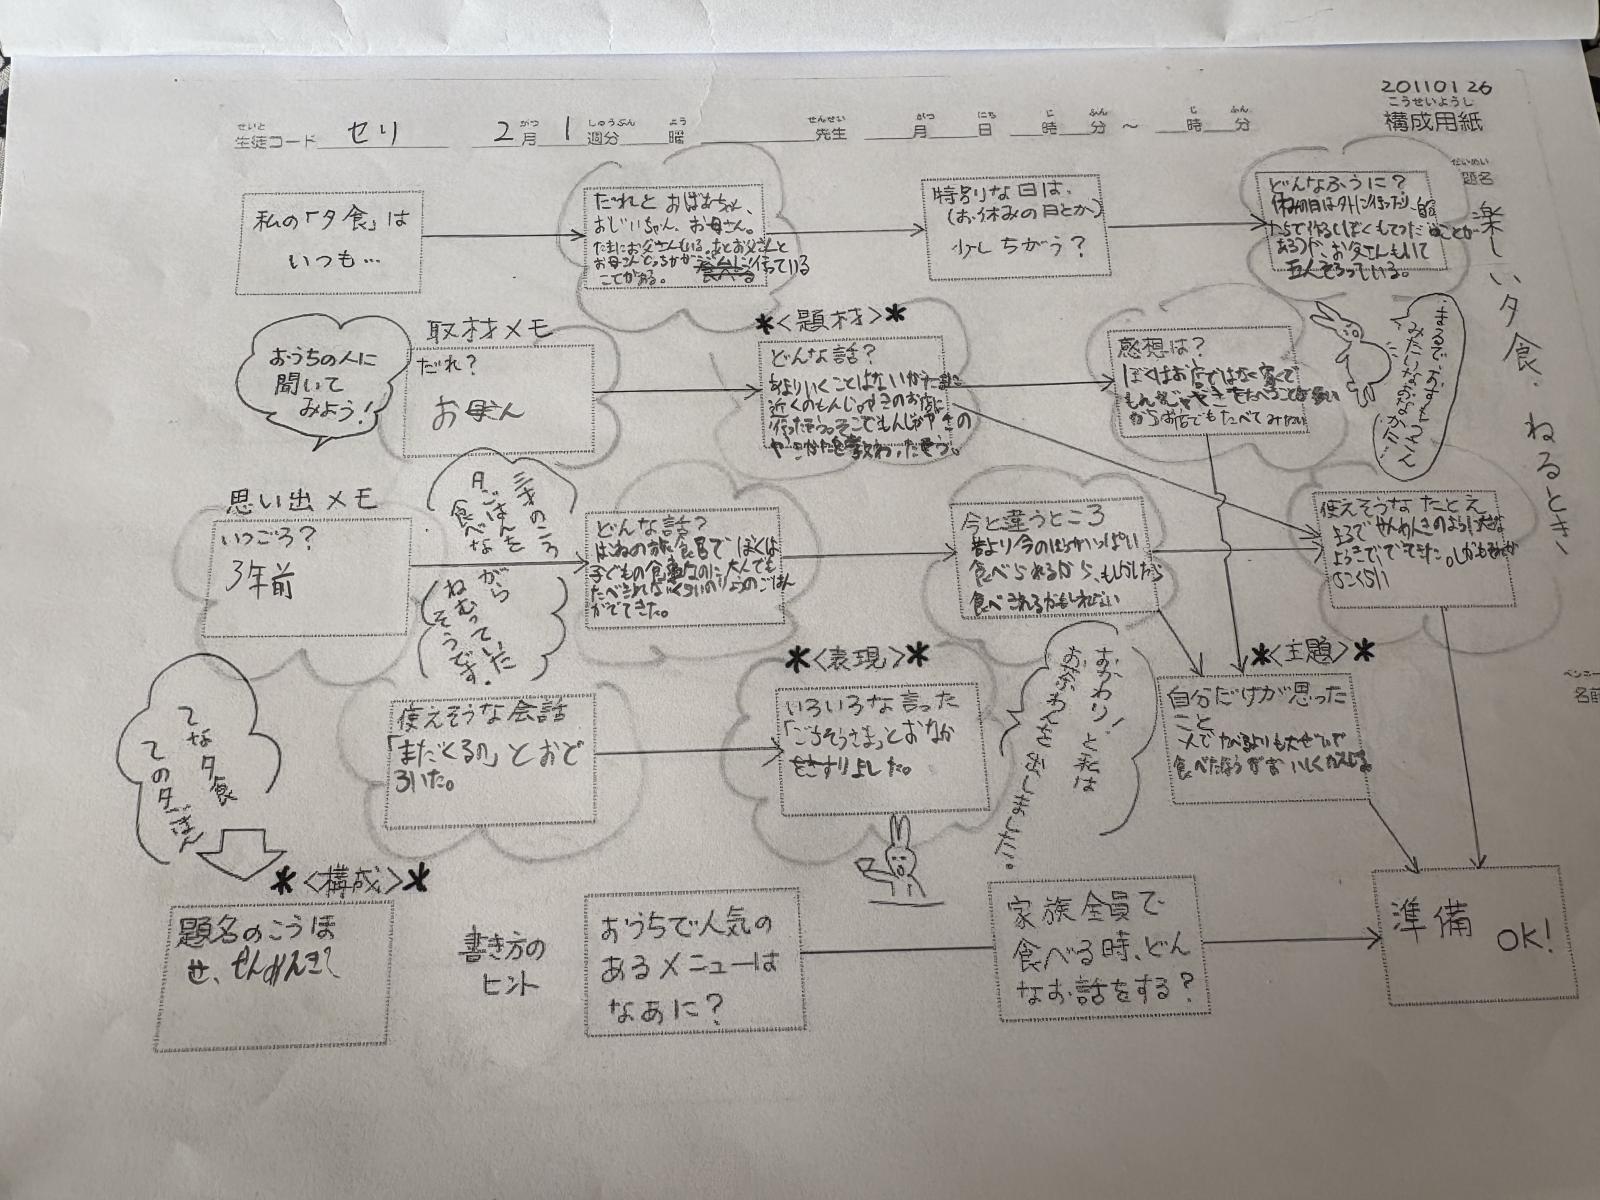 20110126
こうせいようし
構成用紙
せいと
生徒コード セリ 2月 1週分 曜 先生 月 日 時 分 ~ 時 分
だいめい
題名
楽しい夕食、ねるとき、
名前
私の「夕食」は
いつも…
だれと おばあちゃん、
おじいちゃん、お母さん。
たまにお父さんもいる。あとお父さんと
お母さんどっちかがジムに行っている
ことがある。
特別な日は、
(お休みの日とか)
少しちがう?
どんなふうに?
休みの日は外に行ったり、自分
たちで作る(ぼくもてつだうことが
ある)が、お父さんもいて
五人そろっている。
おうちの人に
聞いて
みよう!
取材メモ
だれ?
お母さん
*<題材>*
どんな話?
あまりいくことはないがたまに
近くのもんじゃやきのお店に
行ったそう。そこでもんじゃやきの
やきかたを教わったそう。
感想は?
ぼくはお店ではなく家で
もんじゃやきをたべることが多い
からお店でもたべてみたい
まるでおすもうさん
みたいなおなかだ!
思い出メモ
いつごろ?
3年前
三才のころ
夕ごはんを
食べな
がら
ねむっていた
そうです。
どんな話?
はねの旅食官で ぼくは
子どもの食事なのに大人でも
たべきれないくらいのりょうのごはん
がでてきた。
今と違うところ
昔より今のほうがいっぱい
食べられるから、もしかしたら
食べきれるかもしれない
使えそうなたとえ
まるで せんめんきのように大きな
ようきででてきた。しかも
のこくらい
使えそうな会話
「まだくるの」とおど
ろいた。
*<表現>*
いろいろな言った
「ごちそうさま」とおなか
をさすりよした。
おかわり!と私は
おちゃわんを出しました。
*<主題>*
自分だけが思った
こと
人でたべるよりも大ぜいで
食べたほうがおいしくかんじる。
てな夕食
ての夕ごはん
*<構成>*
題名のこうほ
せ、せんめんきで
書き方の
ヒント
おうちで人気の
あるメニューは
なぁに?
家族全員で
食べる時、どん
なお話をする?
準備
OK!